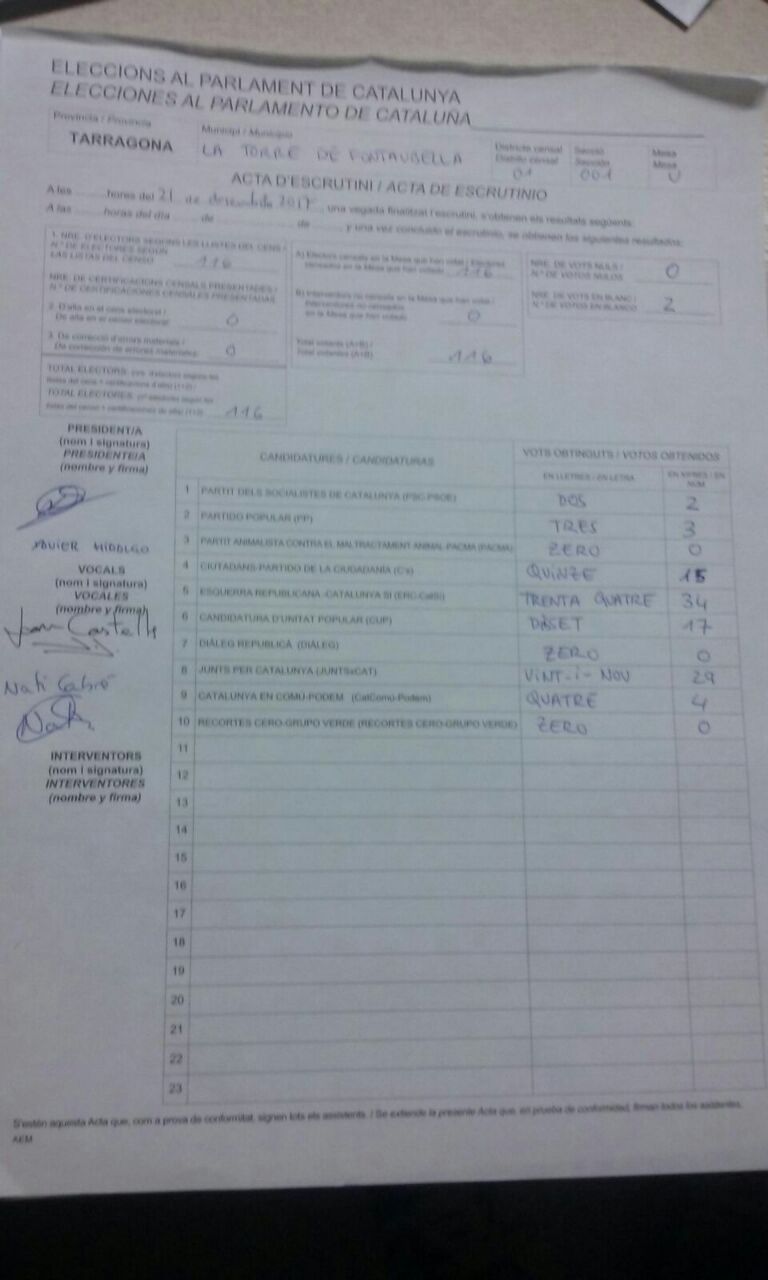 ELECCIONS AL PARLAMENT DE CATALUNYA
ELECCIONES AL PARLAMENTO DE CATALUÑA
Província / Provincia
TARRAGONA
Municipi / Municipio
LA TORRE DE FONTAUBELLA
Districte censal
Distrito censal
01
Secció
Sección
001
Mesa
Mesa
U
ACTA D'ESCRUTINI / ACTA DE ESCRUTINIO
A les ........ hores del 21 de desembre 2017, una vegada finalitzat l'escrutini, s'obtenen els resultats següents:
A las ........ horas del día ........ de ........ de ........, y una vez concluido el escrutinio, se obtienen los siguientes resultados:
1. NRE. D'ELECTORS SEGONS LES LLISTES DEL CENS /
N.º DE ELECTORES SEGÚN
LAS LISTAS DEL CENSO 116
NRE. DE CERTIFICACIONS CENSALS PRESENTADES /
N.º DE CERTIFICACIONES CENSALES PRESENTADAS
2. D'alta en el cens electoral /
De alta en el censo electoral: 0
3. De correcció d'errors materials /
De corrección de errores materiales: 0
TOTAL ELECTORS
TOTAL ELECTORES 116
A) Electors censats en la Mesa que han votat / Electores
censados en la Mesa que han votado 116
B) Interventors no censats en la Mesa que han votat /
Interventores no censados
en la Mesa que han votado 0
Total votants (A+B) /
Total votantes (A+B) 116
NRE. DE VOTS NULS /
N.º DE VOTOS NULOS 0
NRE. DE VOTS EN BLANC /
N.º DE VOTOS EN BLANCO 2
PRESIDENT/A
(nom i signatura)
PRESIDENTE/A
(nombre y firma)
XAVIER HIDALGO
VOCALS
(nom i signatura)
VOCALES
(nombre y firma)
Joan Castells
Nati Cabré
Nati
INTERVENTORS
(nom i signatura)
INTERVENTORES
(nombre y firma)
CANDIDATURES / CANDIDATURAS
VOTS OBTINGUTS / VOTOS OBTENIDOS
EN LLETRES / EN LETRA
EN XIFRES / EN NÚM
1 PARTIT DELS SOCIALISTES DE CATALUNYA (PSC-PSOE) DOS 2
2 PARTIDO POPULAR (PP) TRES 3
3 PARTIT ANIMALISTA CONTRA EL MALTRACTAMENT ANIMAL-PACMA (PACMA) ZERO 0
4 CIUTADANS-PARTIDO DE LA CIUDADANÍA (C's) QUINZE 15
5 ESQUERRA REPUBLICANA -CATALUNYA SÍ (ERC-CatSí) TRENTA QUATRE 34
6 CANDIDATURA D'UNITAT POPULAR (CUP) DISET 17
7 DIÀLEG REPUBLICÀ (DIÀLEG) ZERO 0
8 JUNTS PER CATALUNYA (JUNTSxCAT) VINT-I-NOU 29
9 CATALUNYA EN COMÚ-PODEM (CatComú-Podem) QUATRE 4
10 RECORTES CERO-GRUPO VERDE (RECORTES CERO-GRUPO VERDE) ZERO 0
11
12
13
14
15
16
17
18
19
20
21
22
23
S'estén aquesta Acta que, com a prova de conformitat, signen tots els assistents. / Se extiende la presente Acta que, en prueba de conformidad, firman todos los asistentes.
AEM